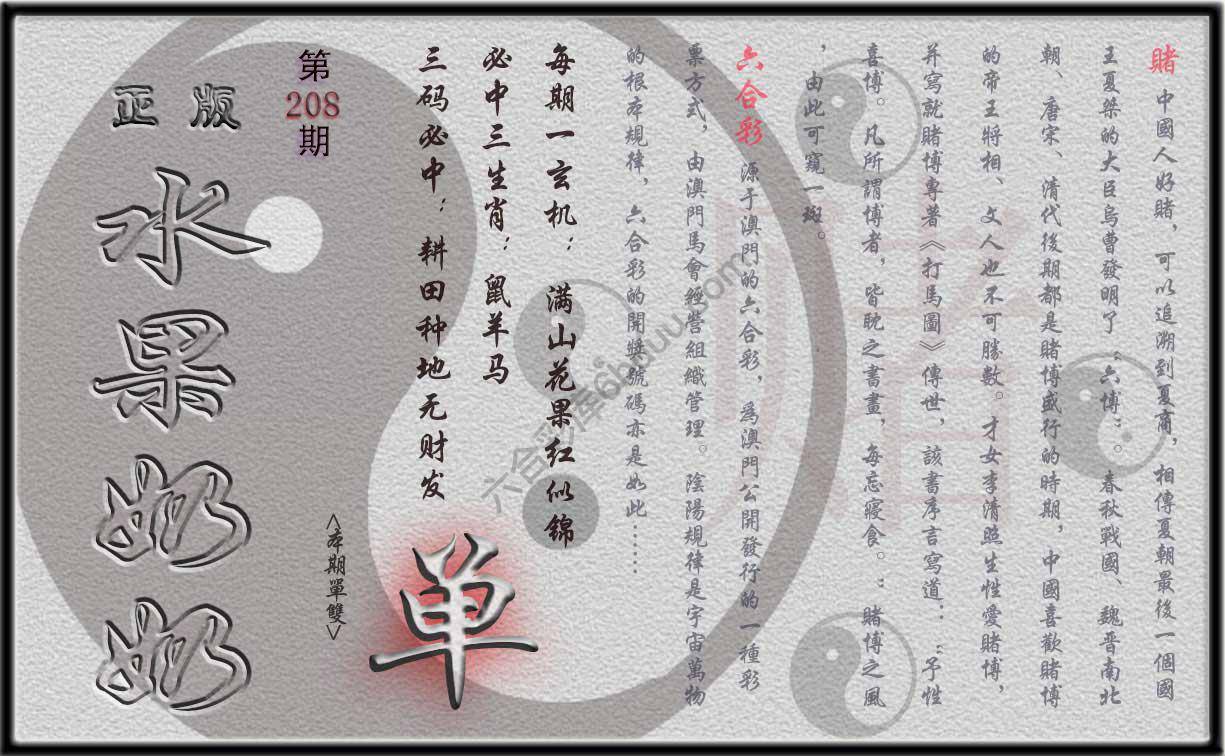 賭 中國人好賭，可以追溯到夏商，相傳夏朝最後一個國
王夏桀的大臣烏曹發明了“六博”。春秋戰國、魏晋南北
朝、唐宋、清代後期都是賭博盛行的時期，中國喜歡賭博
的帝王將相、文人也不可勝數。才女李清照生性愛賭博，
并寫就賭博專著《打馬圖》傳世，該書序言寫道：“予性
喜博。凡所謂博者，皆耽之書畫，每忘寢食。：賭博之風
，由此可窺一斑。
六合彩 源于澳門的六合彩，爲澳門公開發行的一種彩
票方式，由澳門馬會經營組織管理。陰陽規律是宇宙萬物
的根本規律，六合彩的開獎號碼亦是如此……
每期一玄机：满山花果红似锦
必中三生肖：鼠羊马
三码必中：耕田种地无财发
单
<本期單雙>
第
208
期
正版
水果奶奶
賭
六合彩库6huuu.com